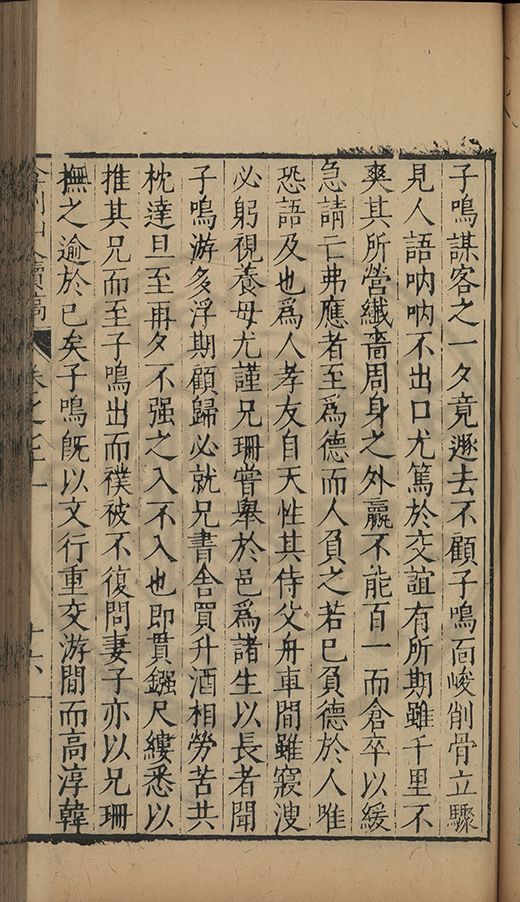 子鳴謀客之一夕竟遯去不顧子鳴面峻削骨立驟
見人語吶吶不出口尤篤於交誼有所期雖千里不
爽其所營纖嗇周身之外贏不能百一而倉卒以緩
急請亡弗應者至爲德而人負之若已負德於人唯
恐語及也爲人孝友自天性其侍父舟車間雖寢溲
必躬視養母尤謹兄珊嘗舉於邑爲諸生以長者聞
子鳴游多浮期顧歸必就兄書舍買升酒相勞苦共
枕達旦至再夕不强之入不入也即貫鏹尺縷悉以
推其兄而至子鳴出而襆被不復問妻子亦以兄珊
撫之逾於已矣子鳴旣以文行重交游間而高淳韓
弇州山人續稿 卷之七十一 十六